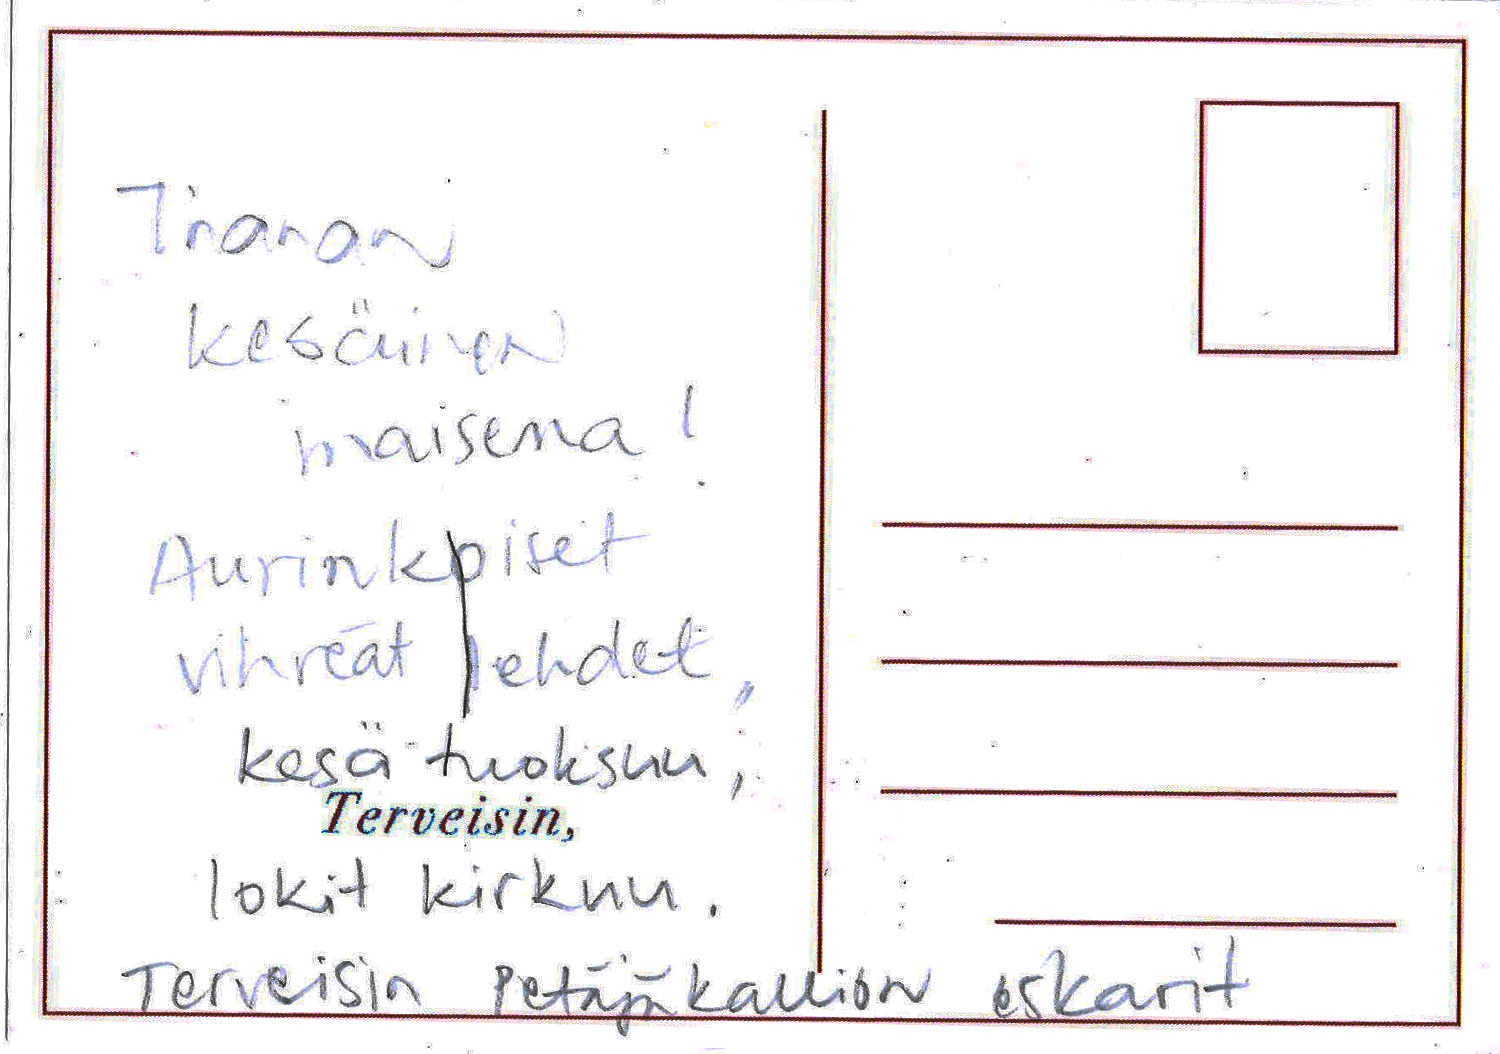 Ihanan
kesäinen
maisema!
Aurinkoiset
vihreät lehdet,
kesä tuoksuu,
Terveisin,
lokit kirkuu.
Terveisin Petäjäkallion eskarit